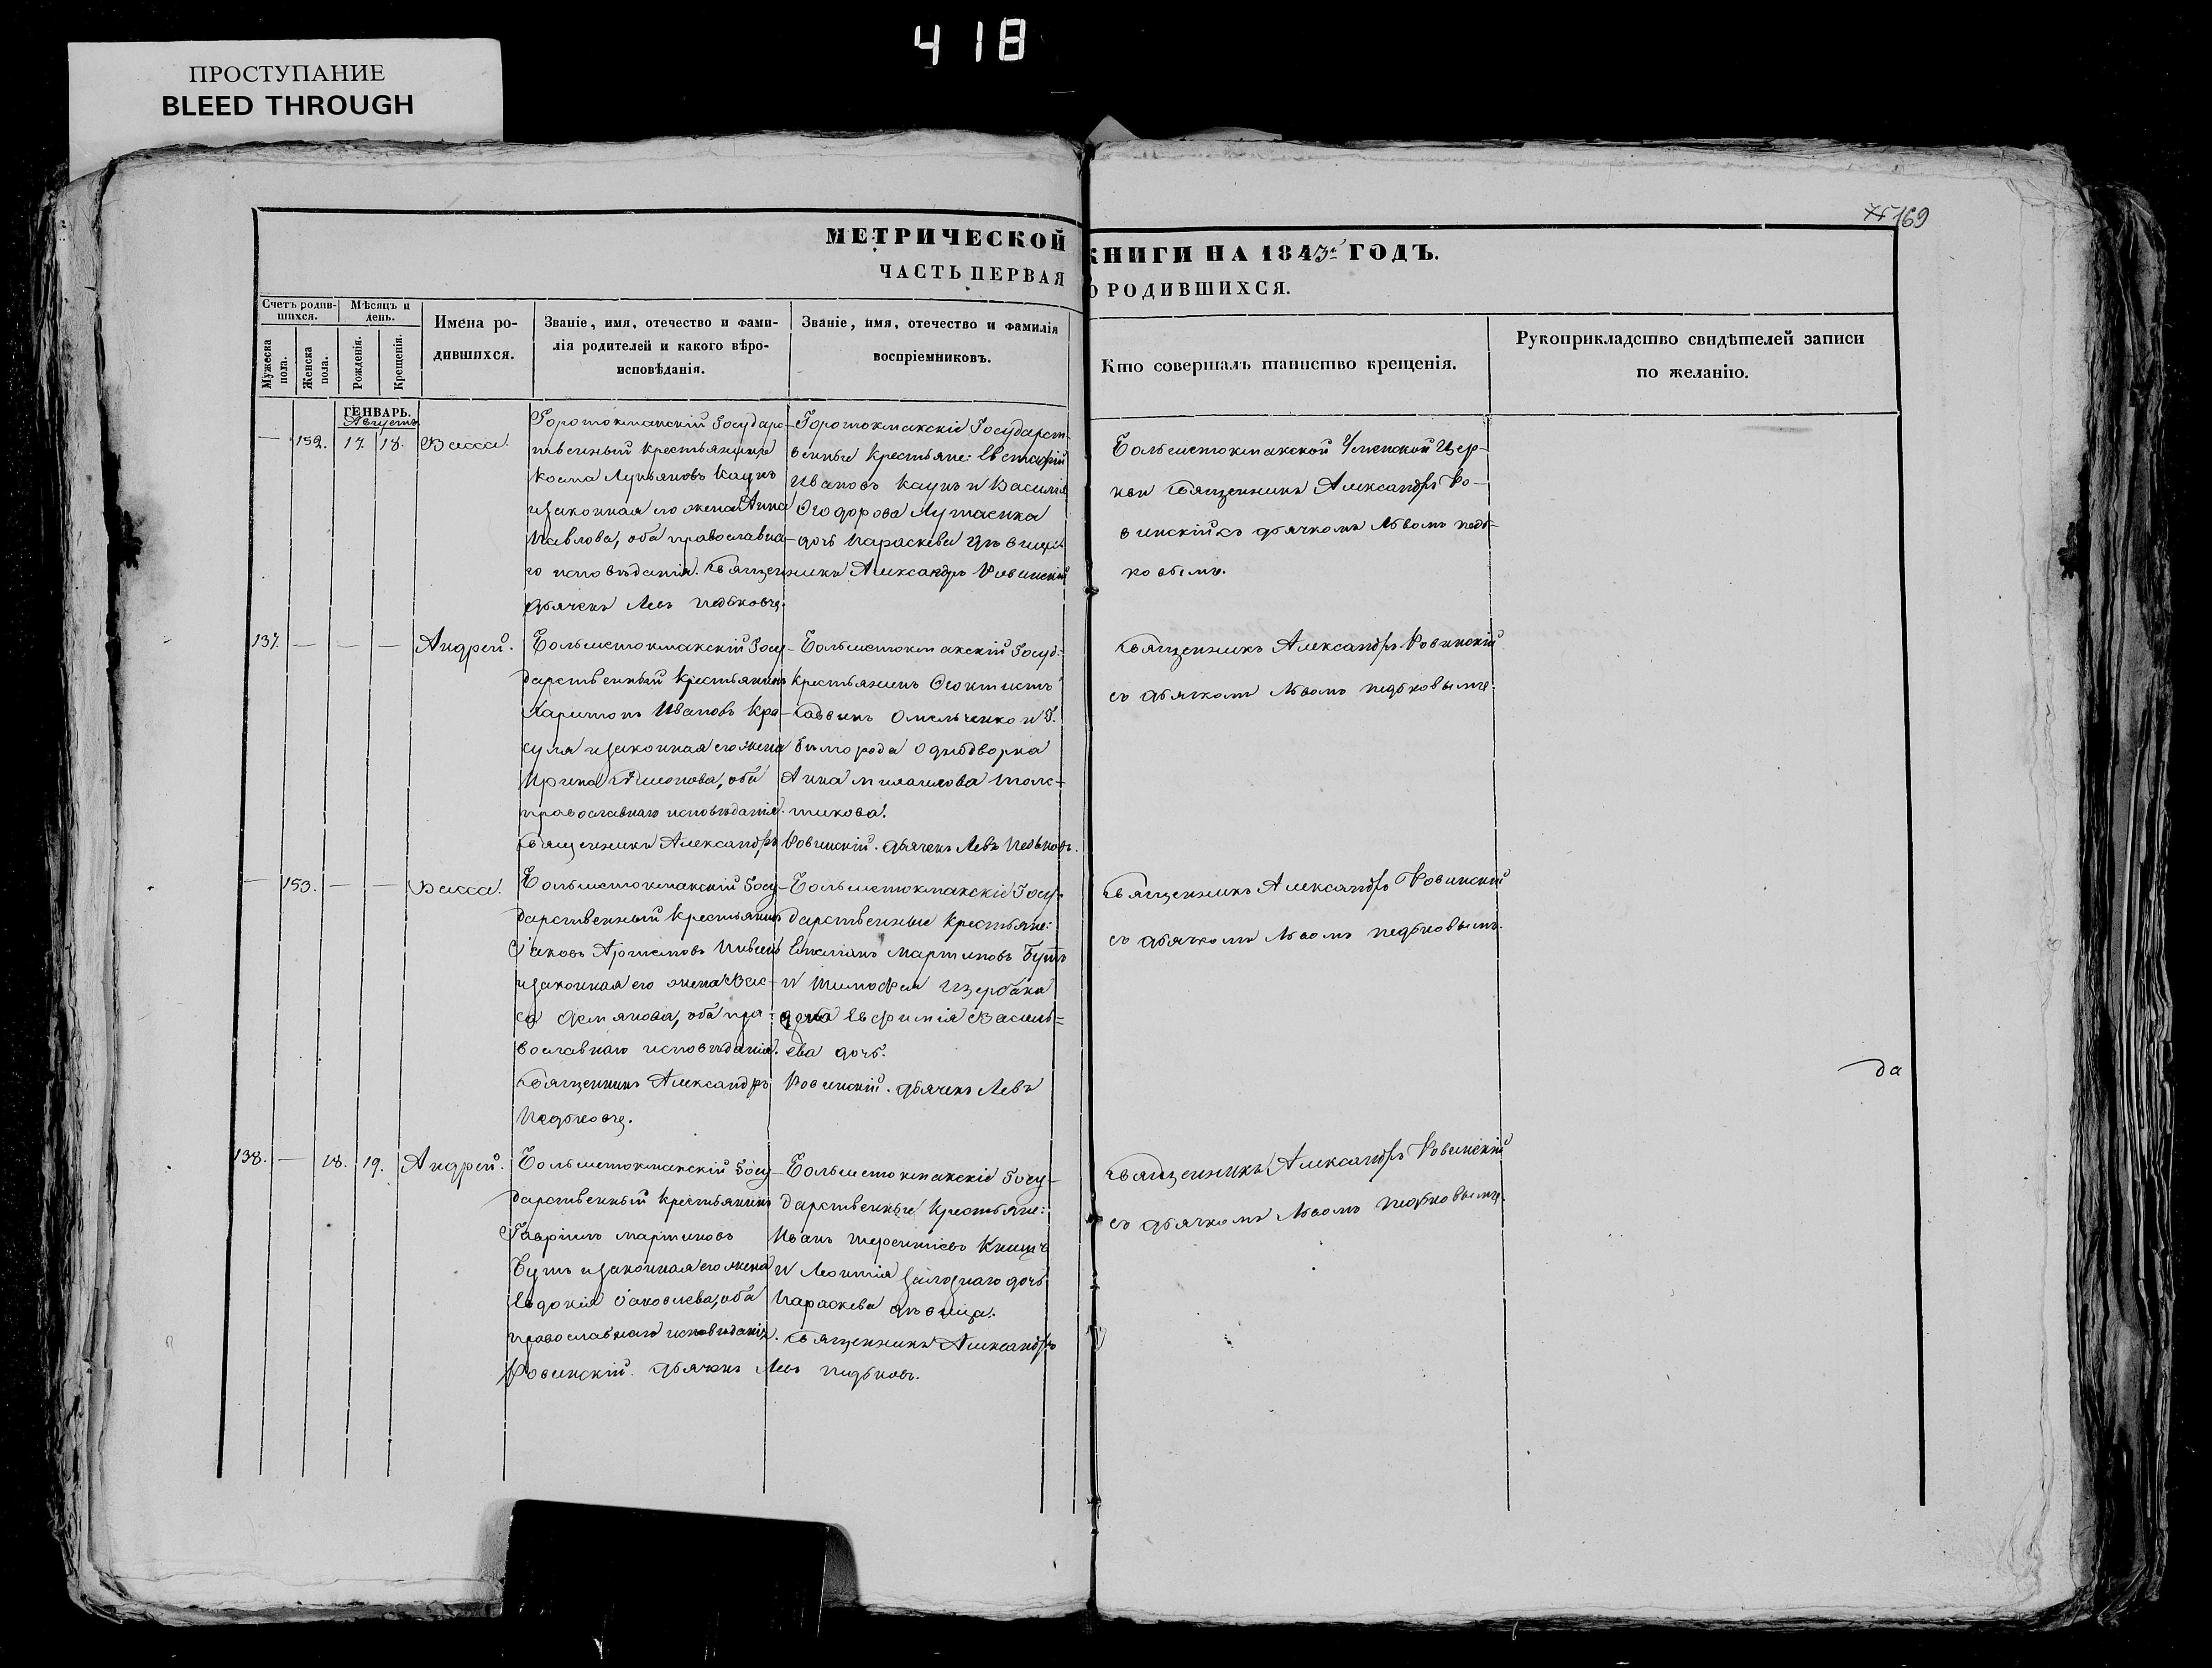 418
ПРОСТУПАНИЕ
BLEED THROUGH
75 169
МЕТРИЧЕСКОЙ КНИГИ НА 1843й ГОДЪ.
ЧАСТЬ ПЕРВАЯ О РОДИВШИХСЯ.
Счетъ родив-
шихся.
Мужеска пола.
Женска пола.
Мѣсяцъ и
день.
Рожденія.
Крещенія.
Имена ро-
дившихся.
Званіе, имя, отечество и фами-
лія родителей и какого вѣро-
исповѣданія.
Званіе, имя, отечество и фамилія
воспріемниковъ.
Кто совершалъ таинство крещенія.
Рукоприкладство свидѣтелей записи
по желанію.
ГЕНВАРЬ.
Августъ
— 152. 17. 18. Васса.
Государс-
твенный крестьянинъ
Косма Лукьяновъ Каунъ
и законная его жена Анна
Павлова, оба православна-
го исповѣданія. Священникъ Александръ Ровинскій
дьячекъ Левъ Педьковъ.
Государст-
венные крестьяне: Евстафій
Ивановъ Каунъ и Василія
Ѳеодорова
дочь Параскева дѣвица
Большетокмакской Успенской Цер-
кви Священникъ Александръ Ро-
винскій съ дьячкомъ Львомъ Педь-
ковымъ.
137. — — — Андрей.
Большетокмакскій Госу-
дарственный крестьянинъ
Харитонъ Ивановъ Кра-
суля и законная его жена
Ирина Симонова, оба
православнаго исповѣданія.
Священникъ Александръ Ровинскій. дьячекъ Левъ Педьковъ.
Большетокмакскій Госуд:
крестьянинъ Ѳеоктистъ
Саввинъ Омельченко и
однодворка
Анна Михаилова Толс-
тикова.
Священникъ Александръ Ровинскій
съ дьячкомъ Львомъ Педьковымъ.
— 153. — — Васса.
Большетокмакскій Госу-
дарственный крестьянинъ
Іаковъ
и законная его жена Вас-
са Демянова, оба пра-
вославнаго исповѣданія.
Священникъ Александръ Ровинскій. дьячекъ Левъ
Педьковъ.
Большетокмакскіе Госу-
дарственные крестьяне:
Мартиновъ Бутъ
и Тимофея Щербака
жена Евфимія Василь=
ева дочь.
Священникъ Александръ Ровинскій
съ дьячкомъ Львомъ Педьковымъ.
да
138. — 18. 19. Андрей.
Большетокмакскій Госу-
дарственный крестьянинъ
Гавріилъ Мартиновъ
Бутъ и законная его жена
Евдокія Іаковлева, оба
православнаго исповѣданія. Священникъ Александръ
Ровинскій. дьячекъ Левъ Педьковъ.
Большетокмакскіе Госу-
дарственные крестьяне:
Иванъ Терентіевъ
и Леонтія дочь
Параскева дѣвица.
Священникъ Александръ Ровинскій
съ дьячкомъ Львомъ Педьковымъ.